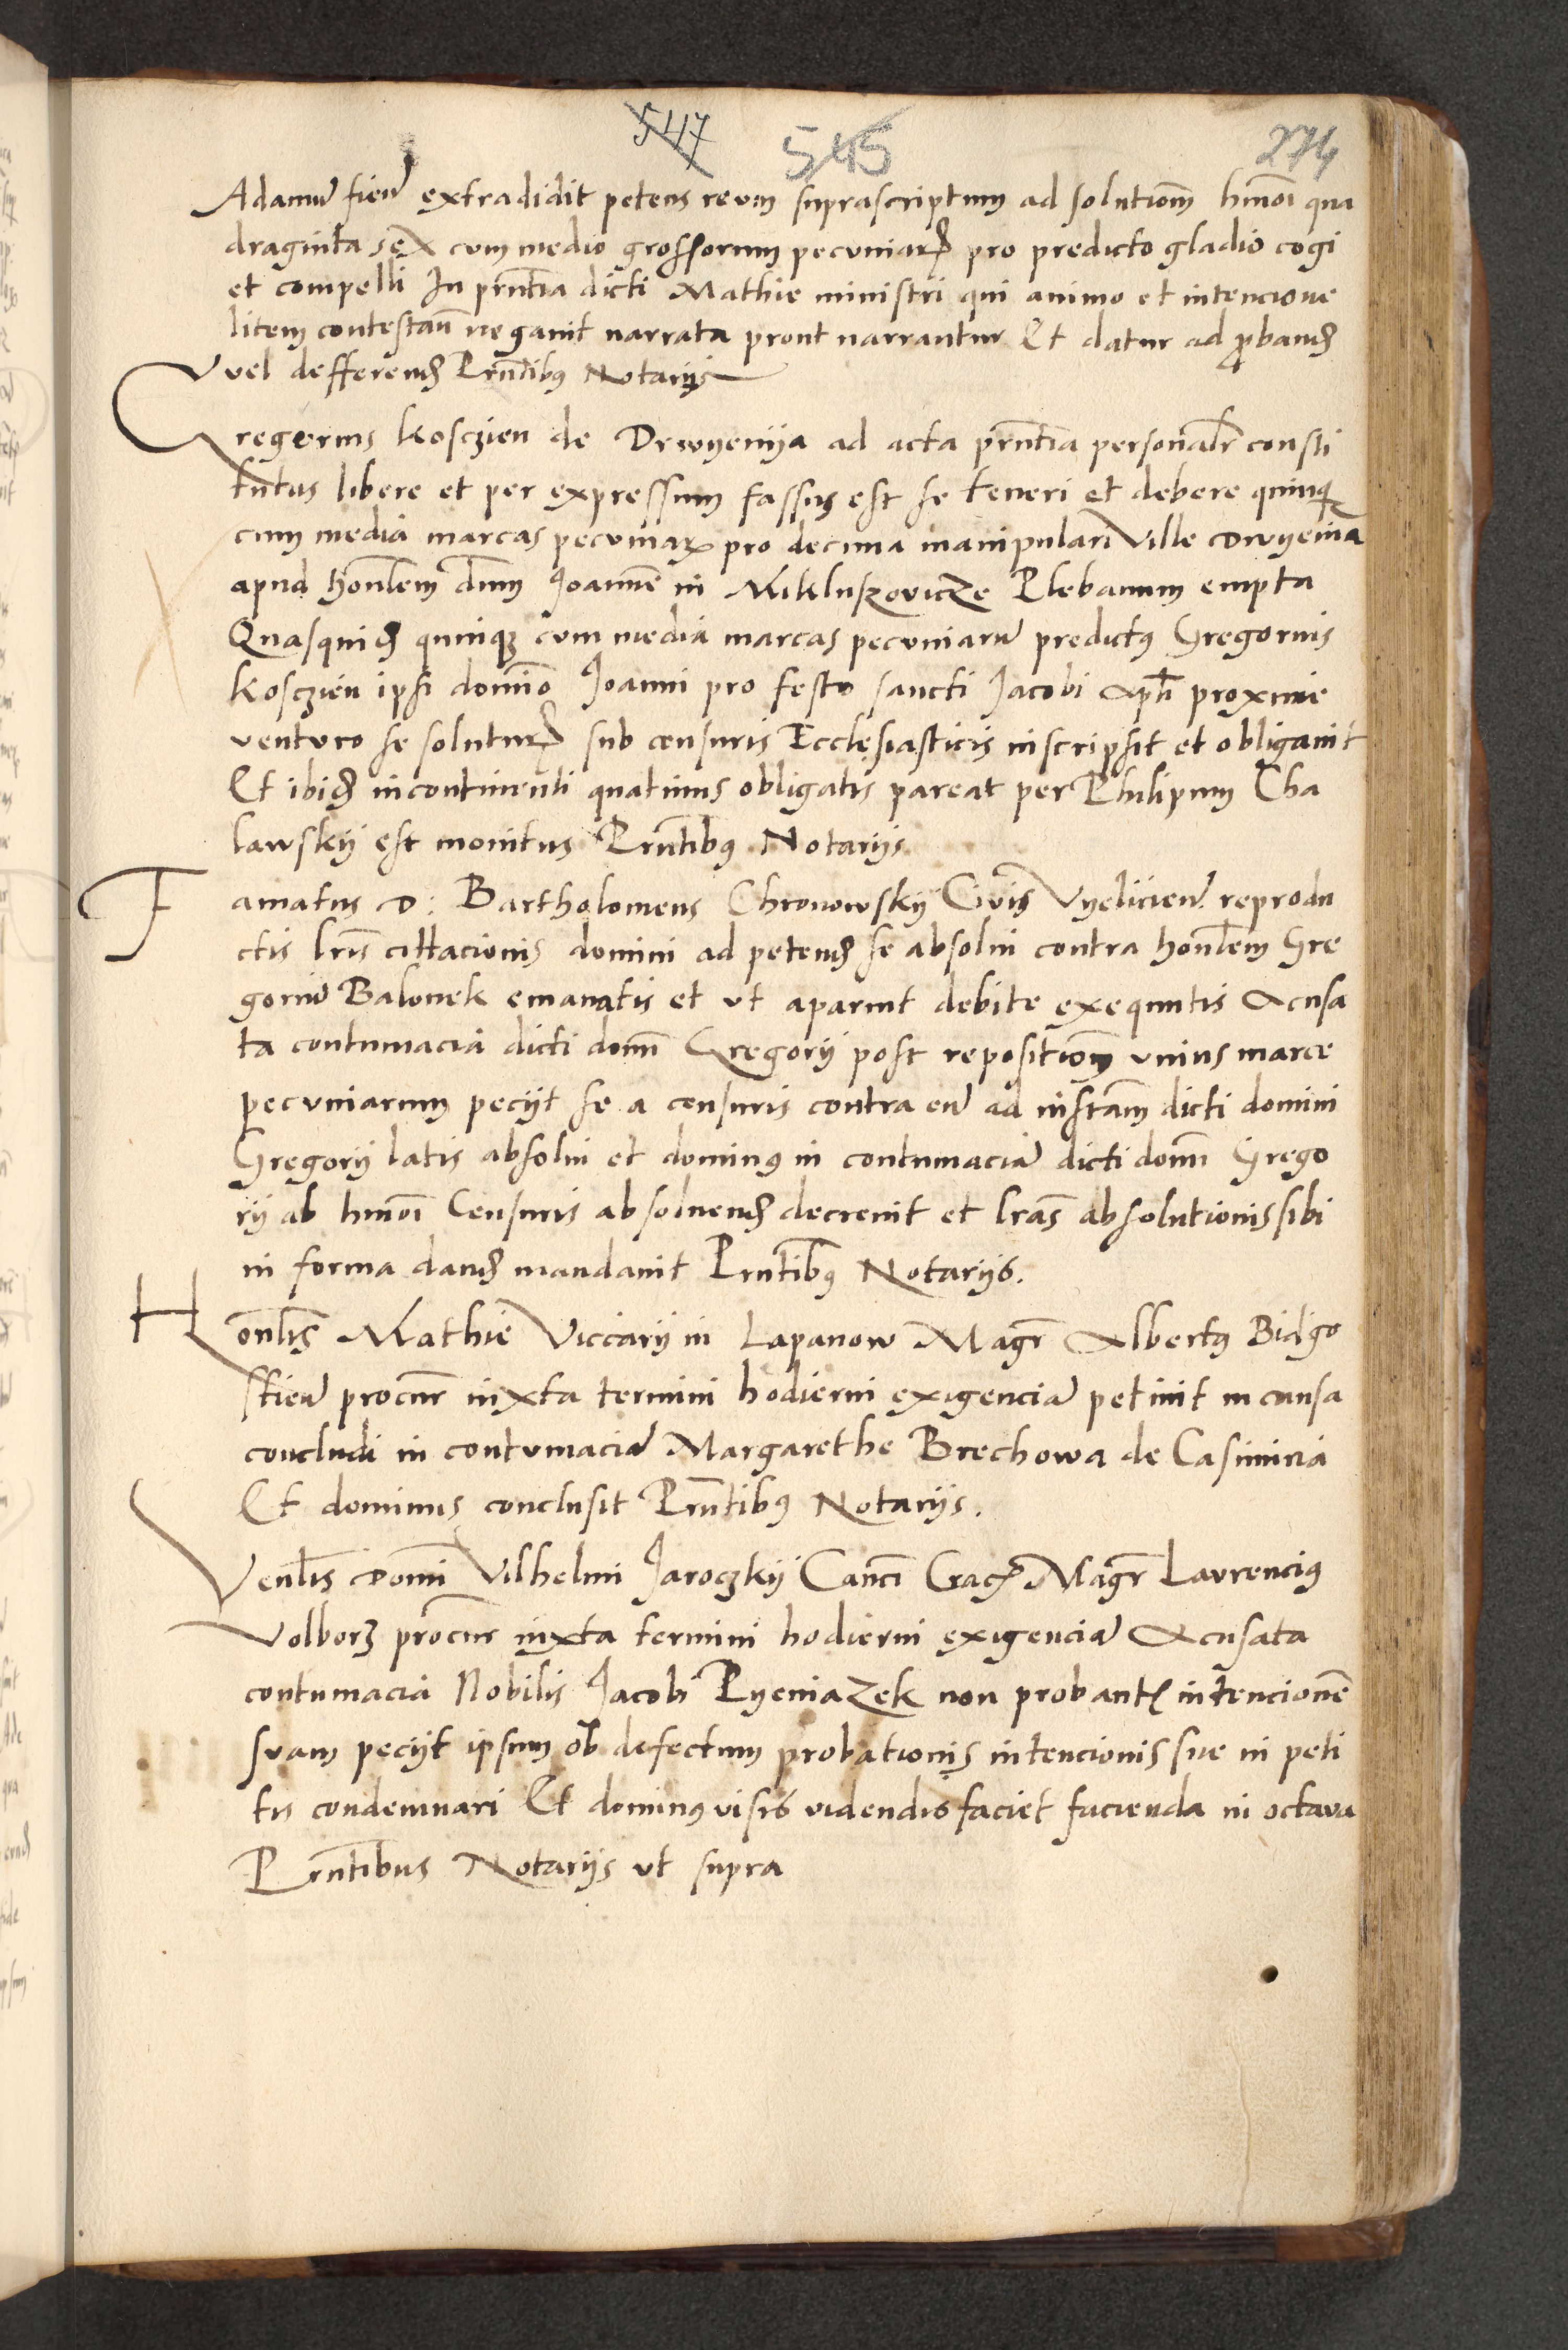 547 545 274
Adamū fieñ extradidit petens reum suprascriptum ad solutioēm hmōi qua
draginta sex cum medio grossorum pecuniarꝝ pro predicto gladio cogi
et compelli In prn̄tia dicti Mathie ministri qui animo et intencione
litem contestan̄ negauit narrata prout narrantur Et datur ad ꝓbandꝫ
vel defferendꝫ Prn̄tibꝰ Notarijs
Gregorius Kosczien de Drwyenija ad acta prn̄tia personalr̄ consti
tutus libere et per expressum fassus est se teneri et debere quinqꝫ
cum media marcas pecuniarꝝ pro decima manipulari Ville Drwyenia
apud hon̄lem dn̄m Joannē in Mikluszovicze Plebanum empta
Quasquidꝫ quinqꝫ cum media marcas pecuniarū predictꝰ Gregorius
Kosczien ipsi domīo Joanni pro festo sancti Jacobi Apl̄i proxime
venturo se soluturꝝ sub censuris Ecclesiasticis inscripsit et obligauit
Et ibidꝫ incontinenti quatinus obligatis pareat per Philipum Cha
lawskij est monitus Prn̄tibꝰ Notarijs
Famatus D: Bartholomeus Chronowskij Civis Vyelicieñ reprodu
ctis lrīs cittacionis domini ad petendꝫ se absolui contra hon̄lem Gre
goriū Balonek emanatis et vt aparuit debite exequutis Acusa
ta contumacia dicti domī Gregorij post repositioēm vnius marce
pecuniarum pecijt se a censuris contra eū ad instam̄ dicti domini
Gregorij latis absolui et dominꝰ in contumaciā dicti domī Grego
rij ab hmōi Censuris absoluendꝫ decreuit et lrās absolutionis sibi
in forma dandꝫ mandauit Prn̄tibꝰ Notarijs.
Hon̄lis Mathie Viccarij in Lapanow Magr̄ Albertꝰ Bidgo
stieñ procur̄ iuxta termini hodierni exigenciā petiuit in causa
concludi in contumaciā Margarethe Brechowa de Casimiria
Et dominus conclusit Prn̄tibꝰ Notarijs.
Ven̄lis Domī Vilhelmi Jaroczkij Can̄ci Cracꝫ Magr̄ Laurencius
Volborz procur̄ iuxta termini hodierni exigenciā Acusata
contumacia Nobilis Jacobi Pyeniazek non probantꝭ intencionē
suam pecijt ipsum ob defectum probationis intencionis sue in peti
tis condemnari Et dominꝰ visis videndis faciet facienda in octaua
Prn̄tibus Notarijs vt supra